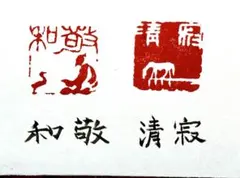 和敬 清寂
和敬 清寂